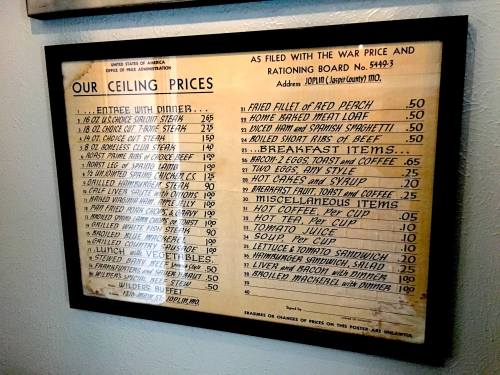 UNITED STATES OF AMERICA
OFFICE OF PRICE ADMINISTRATION
OUR CEILING PRICES
AS FILED WITH THE WAR PRICE AND
RATIONING BOARD No. 5449-3
Address JOPLIN (JASPER COUNTY) MO.
1 ...ENTREE WITH DINNER...
2 16 OZ. U.S. CHOICE SIRLOIN STEAK 265
3 18 OZ. CHOICE CUT T-BONE STEAK 225
4 14 OZ. CHOICE CUT STEAK 150
5 8 OZ. BONELESS CLUB STEAK 140
6 ROAST PRIME RIBS of CHOICE BEEF 199
7 ROAST LEG of SPRING LAMB 199
8 ½ UNJOINTED SPRING CHICKEN C.S. 125
9 GRILLED HAMBURGER STEAK 90
10 CALF LIVER SAUTE WITH ONIONS 199
11 BAKED VIRGINIA HAM 199
12 PAN FRIED PORK CHOPS, & GRAVY 199
13 BROILED ON TOAST 199
14 GRILLED WHITE FISH STEAK 90
15 BROILED BLUE MACKEREL 199
16 GRILLED COUNTRY SAUSAGE 199
17 LUNCH WITH VEGETABLES.
18 STEWED BABY with 50
19 FRANKFURTERS and SAUER KRAUT .50
20 WILDERS SPECIAL BEEF STEW .50
WILDERS BUFFET
1216 MAIN ST. JOPLIN, MO.
21 FRIED FILLET of RED PERCH .50
22 HOME BAKED MEAT LOAF .50
23 DICED HAM and SPANISH SPAGHETTI .50
24 BOILED SHORT RIBS of BEEF .50
25 ...BREAKFAST ITEMS...
26 BACON-2 EGGS, TOAST and COFFEE .65
27 TWO EGGS, ANY STYLE .25
28 HOT CAKES and SYRUP .20
29 BREAKFAST FRUIT, TOAST and COFFEE .25
30 MISCELLANEOUS ITEMS
31 HOT COFFEE, PER CUP .05
32 HOT TEA, PER CUP .10
33 TOMATO JUICE .10
34 SOUP, PER CUP .10
35 LETTUCE & TOMATO SANDWICH .20
36 HAMBURGER SANDWICH, SALAD .25
37 LIVER and BACON WITH DINNER 199
38 BROILED MACKEREL WITH DINNER 199
39
40
Signed by
ERASURES OR CHANGES OF PRICES ON THIS POSTER ARE UNLAWFUL